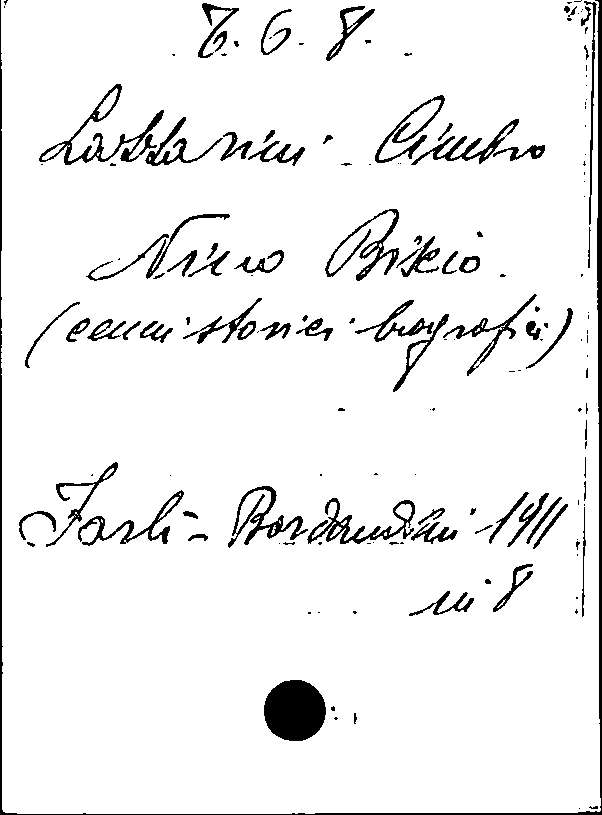 7. G. 8.
Lazzarini Cimbro
Nino Bixio
(cenni storici biografici)
Forlì - Bordandini 1911
in 8